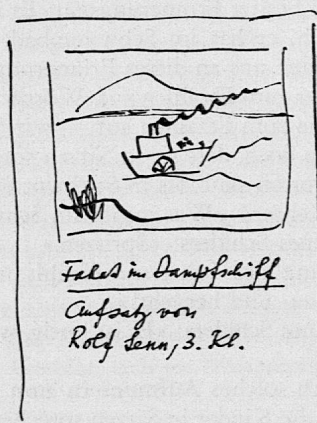 Fahrt im Dampfschiff
Aufsatz von
Rolf Senn, 3. Kl.